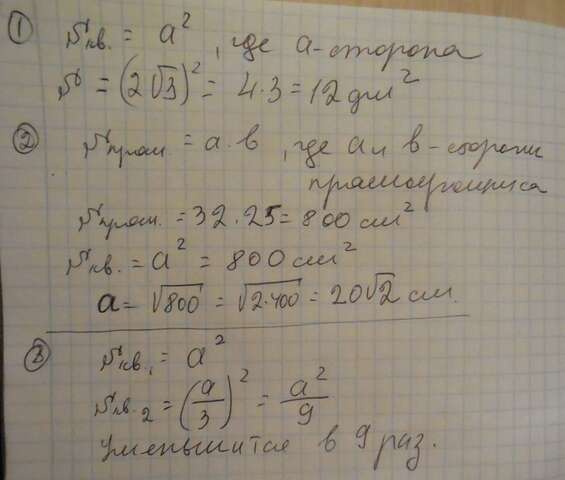 ① Sкв. = a², где a-сторона
S = (2√3)² = 4·3 = 12 дм²
② Sпрям. = a·b, где a и b-стороны
прямоугольника
Sпрям. = 32·25 = 800 см²
Sкв. = a² = 800 см²
a = √800 = √2·400 = 20√2 см.
③ Sкв.₁ = a²
Sкв.₂ = (a/3)² = a²/9
Уменьшится в 9 раз.